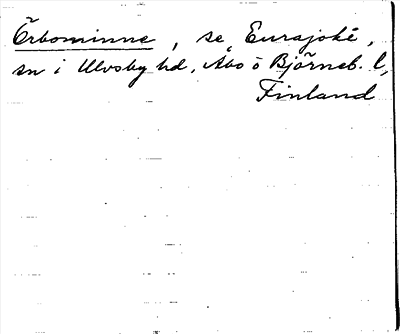 Örbominne, se Eurajoki,
sn i Ulvsby hd, Åbo o Björneb. l,
Finland